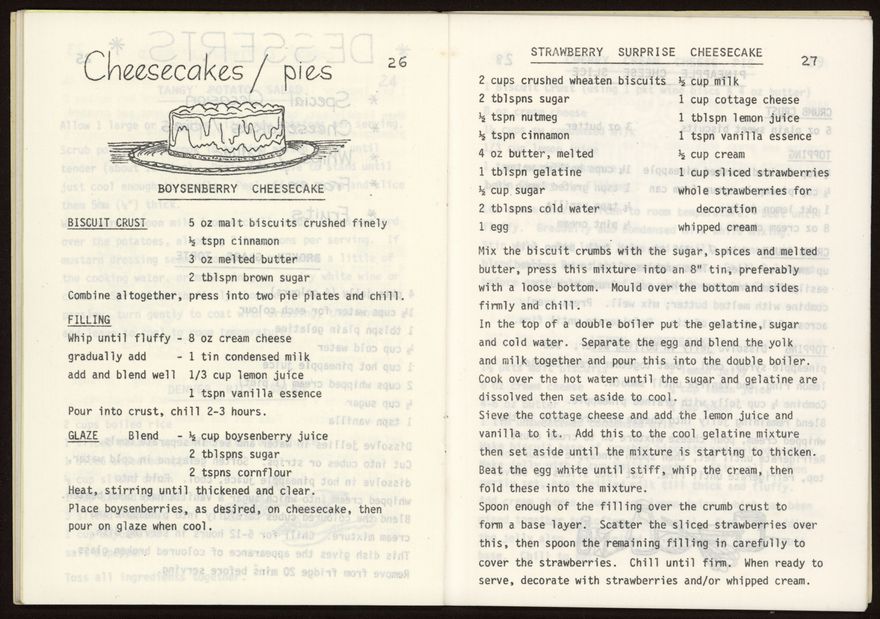 26
Cheesecakes/pies
BOYSENBERRY CHEESECAKE
BISCUIT CRUST 5 oz malt biscuits crushed finely
½ tspn cinnamon
3 oz melted butter
2 tblspn brown sugar
Combine altogether, press into two pie plates and chill.
FILLING
Whip until fluffy - 8 oz cream cheese
gradually add - 1 tin condensed milk
add and blend well 1/3 cup lemon juice
1 tspn vanilla essence
Pour into crust, chill 2-3 hours.
GLAZE Blend - ½ cup boysenberry juice
2 tblspns sugar
2 tspns cornflour
Heat, stirring until thickened and clear.
Place boysenberries, as desired, on cheesecake, then
pour on glaze when cool.
27
STRAWBERRY SURPRISE CHEESECAKE
2 cups crushed wheaten biscuits ½ cup milk
2 tblspns sugar 1 cup cottage cheese
½ tspn nutmeg 1 tblspn lemon juice
½ tspn cinnamon 1 tspn vanilla essence
4 oz butter, melted ½ cup cream
1 tblspn gelatine 1 cup sliced strawberries
½ cup sugar whole strawberries for
2 tblspns cold water decoration
1 egg whipped cream
Mix the biscuit crumbs with the sugar, spices and melted
butter, press this mixture into an 8" tin, preferably
with a loose bottom. Mould over the bottom and sides
firmly and chill.
In the top of a double boiler put the gelatine, sugar
and cold water. Separate the egg and blend the yolk
and milk together and pour this into the double boiler.
Cook over the hot water until the sugar and gelatine are
dissolved then set aside to cool.
Sieve the cottage cheese and add the lemon juice and
vanilla to it. Add this to the cool gelatine mixture
then set aside until the mixture is starting to thicken.
Beat the egg white until stiff, whip the cream, then
fold these into the mixture.
Spoon enough of the filling over the crumb crust to
form a base layer. Scatter the sliced strawberries over
this, then spoon the remaining filling in carefully to
cover the strawberries. Chill until firm. When ready to
serve, decorate with strawberries and/or whipped cream.